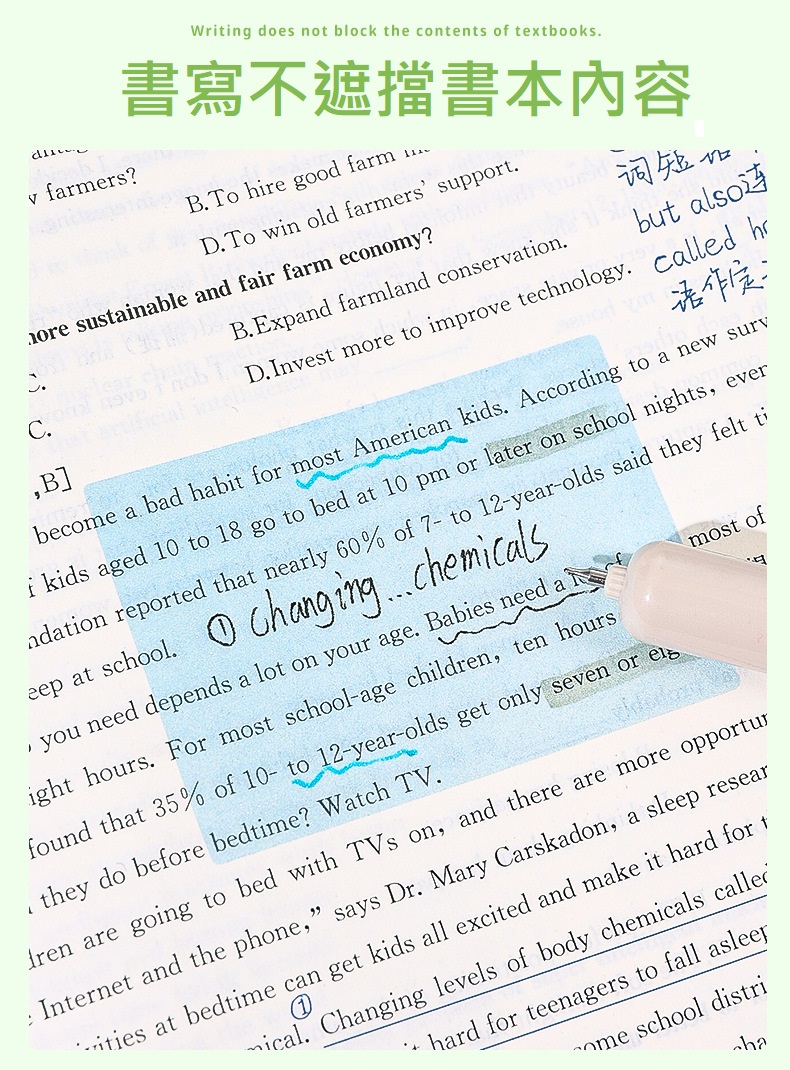 Writing does not block the contents of textbooks.
書寫不遮擋書本內容
farmers?
B.To hire good farm
D.To win old farmers' support.
more sustainable and fair farm economy?
B.Expand farmland conservation.
D.Invest more to improve technology.
C.
C.
,B]
词短语
but also连
called
语作定
become a bad habit for most American kids. According to a new
of kids aged 10 to 18 go to bed at 10 pm or later on school nights, even
reported that nearly 60% of 7- to 12-year-olds said they felt
at school.
① changing...chemicals
most of
you need depends a lot on your age. Babies need a lot of
hours. For most school-age children, ten hours
found that 35% of 10- to 12-year-olds get only seven or
they do before bedtime? Watch TV.
are going to bed with TVs on, and there are more
Internet and the phone,” says Dr. Mary Carskadon, a sleep
at bedtime can get kids all excited and make it hard for
① Changing levels of body chemicals called
hard for teenagers to fall asleep
some school